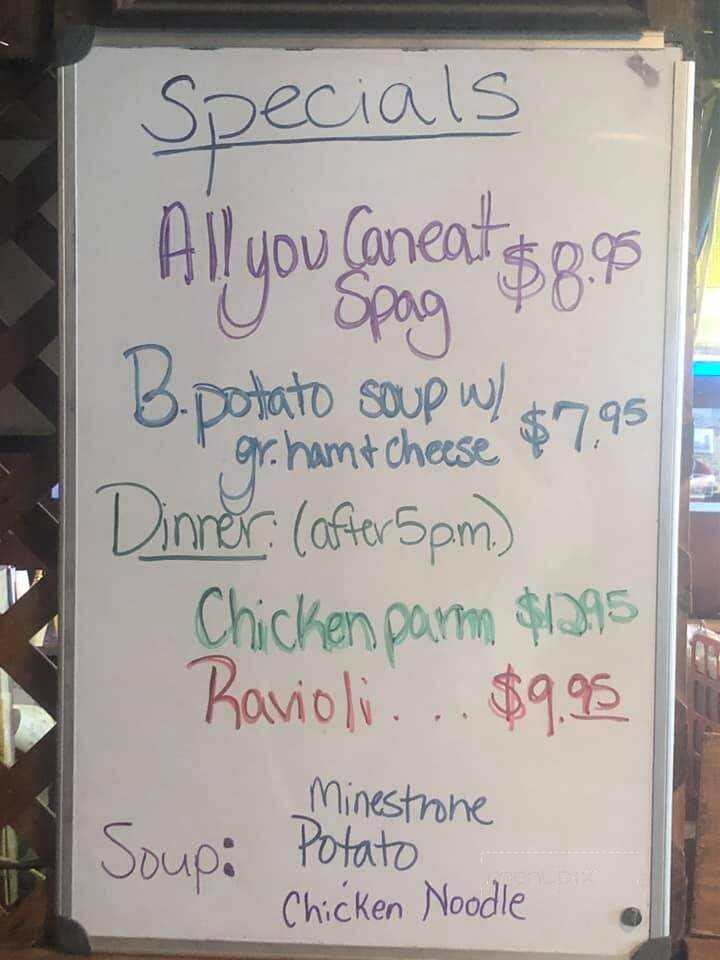 Specials
All you Can eat $8.95
Spag
B. potato soup w/ $7.95
gr. ham + cheese
Dinner: (after 5 p.m.)
Chicken parm $12.95
Ravioli . . . $9.95
Minestrone
Soup: Potato
Chicken Noodle